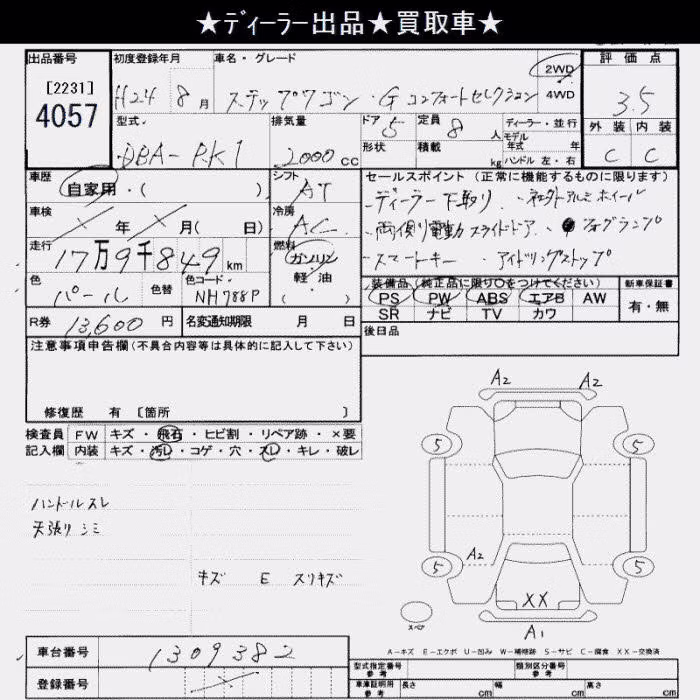 ★ディーラー出品★買取車★
出品番号 初度登録年月 車名・グレード 評価点
[2231]
4057
H24 8月 ステップワゴン・G コンフォートセレクション 2WD 4WD 3.5
型式 排気量 ドア 5 定員 8人 ディーラー・並行 外装 内装
DBA-RK1 2000cc 形状 積載 kg モデル年式 年 ハンドル 左・右 C C
車歴 シフト セールスポイント(正常に機能するものに限ります)
自家用・( ) AT ・ディーラー下取り ・社外アルミホイール
車検 年 月( 日) 冷房 AC ・両側電動スライドドア ・フォグランプ
走行 17万9千849km 燃料 ガソリン 軽油 ( ) ・スマートキー ・アイドリングストップ
色 パール 色替 色コード NH788P
装備品(純正品に限り○をつけてください) 新車保証書
PS PW ABS エアB AW 有・無
SR ナビ TV カワ
R券 13,600円 名変通知期限 月 日 後日品
注意事項申告欄(不具合内容等は具体的に記入して下さい)
修復歴 有 [箇所 ]
検査員 FW キズ・飛石・ヒビ割・リペア跡・×要
記入欄 内装 キズ・汚レ・コゲ・穴・スレ・キレ・破レ
ハンドルスレ
天張りシミ
キズ E スリキズ
A2 A2
5 5
A2
5 5
XX
スペア
A1
A-キズ E-エクボ U-凹み W-補修跡 S-サビ C-腐食 XX-交換済
車台番号 1309382
型式指定番号 参考 類別区分番号 参考
登録番号
車庫証明用 参考 長さ cm 幅 cm 高さ cm